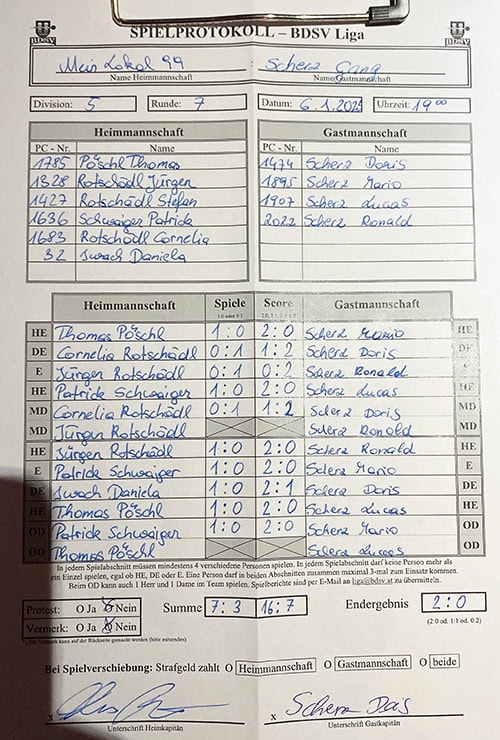 SPIELPROTOKOLL – BDSV Liga
BDSV BDSV
Mein Lokal 99 Scherz Gang
Name Heimmannschaft Name Gastmannschaft
Division: 5 Runde: 7 Datum: 6.1.2025 Uhrzeit: 19 00
Heimmannschaft Gastmannschaft
PC - Nr. Name PC - Nr. Name
1785 Pöschl Thomas 1474 Scherz Doris
1328 Rotschädl Jürgen 1895 Scherz Mario
1427 Rotschädl Stefan 1907 Scherz Lucas
1636 Schwaiger Patrick 2022 Scherz Ronald
1683 Rotschädl Cornelia
32 Jwach Daniela
Heimmannschaft Spiele Score Gastmannschaft
1:0 oder 0:1
HE Thomas Pöschl 1:0 2:0 Scherz Mario HE
DE Cornelia Rotschädl 0:1 1:2 Scherz Doris DE
E Jürgen Rotschädl 0:1 0:2 Scherz Ronald
HE Patrick Schwaiger 1:0 2:0 Scherz Lucas HE
MD Cornelia Rotschädl 0:1 1:2 Scherz Doris MD
MD Jürgen Rotschädl Scherz Ronald MD
HE Jürgen Rotschädl 1:0 2:0 Scherz Ronald HE
E Patrick Schwaiger 1:0 2:0 Scherz Mario E
DE Jwach Daniela 1:0 2:1 Scherz Doris DE
HE Thomas Pöschl 1:0 2:0 Scherz Lucas HE
OD Patrick Schwaiger 1:0 2:0 Scherz Mario OD
OD Thomas Pöschl Scherz Lucas OD
In jedem Spielabschnitt müssen mindestens 4 verschiedene Personen spielen. In jedem Spielabschnitt darf keine Person mehr als
ein Einzel spielen, egal ob HE, DE oder E. Eine Person darf in beiden Abschnitten zusammen maximal 3-mal zum Einsatz kommen.
Beim OD kann auch 1 Herr und 1 Dame im Team spielen. Spielberichte sind per E-Mail an liga@bdsv.at zu übermitteln.
Protest: O Ja O Nein Summe 7:3 16:7 Endergebnis 2:0
Vermerk: O Ja O Nein (2:0 od. 1:1 od. 0:2)
Ein Vermerk kann auf der Rückseite gemacht werden (bitte ankreuzen)
Bei Spielverschiebung: Strafgeld zahlt O Heimmannschaft O Gastmannschaft O beide
x x Scherz Doris
Unterschrift Heimkapitän Unterschrift Gastkapitän